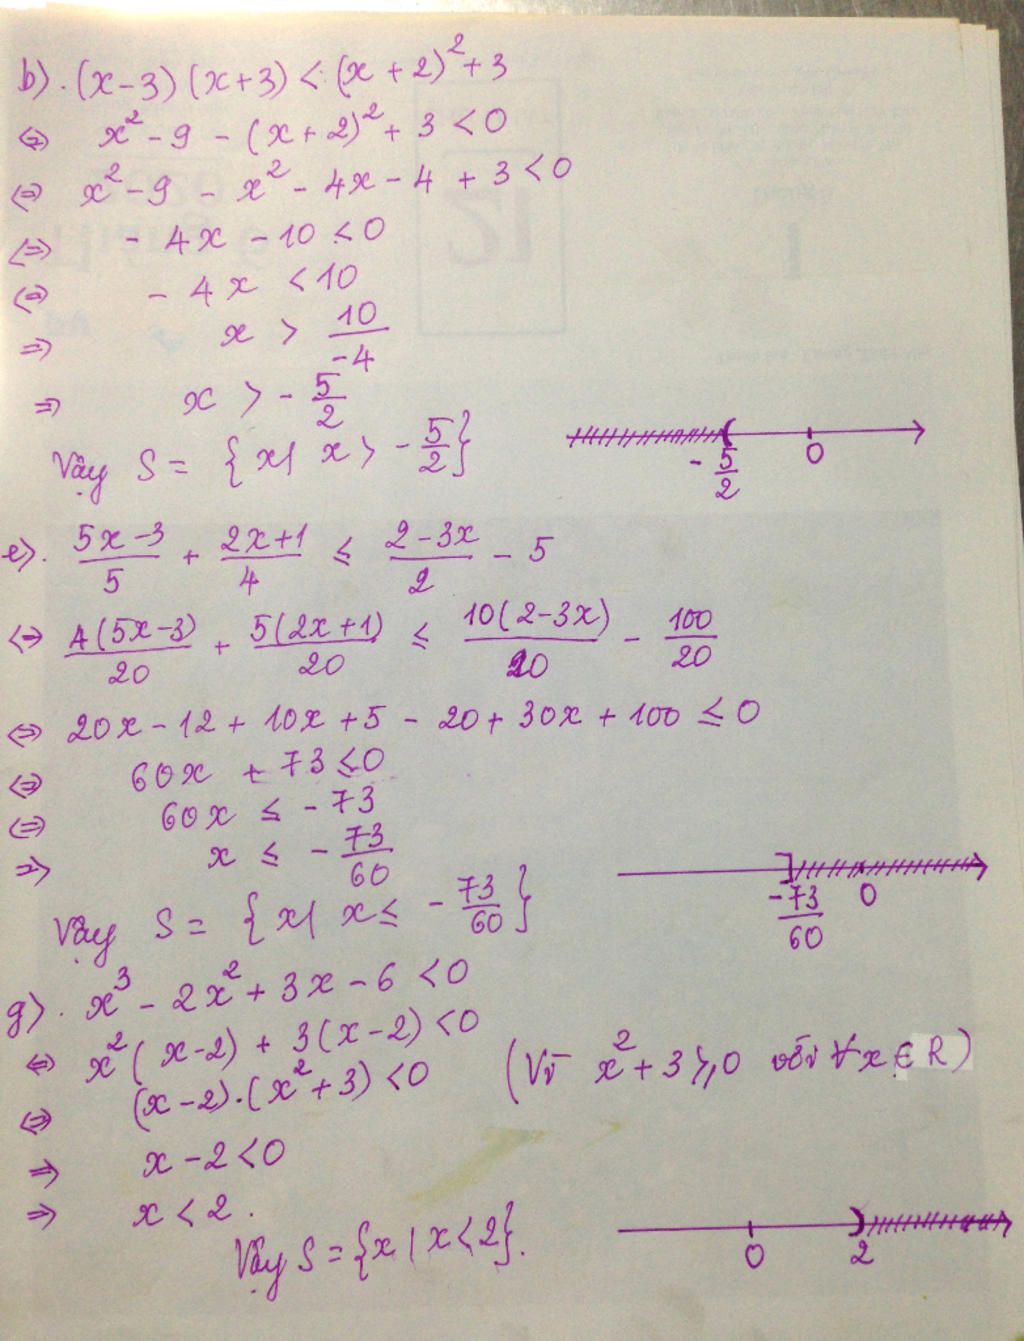 b). (x-3)(x+3) < (x+2)² + 3
⇔ x² - 9 - (x+2)² + 3 < 0
⇔ x² - 9 - x² - 4x - 4 + 3 < 0
⇔ - 4x - 10 < 0
⇔ - 4x < 10
⇒ x > 10/-4
⇒ x > - 5/2
Vậy S = {x | x > - 5/2}
- 5/2 0
e). (5x-3)/5 + (2x+1)/4 ≤ (2-3x)/2 - 5
⇔ 4(5x-3)/20 + 5(2x+1)/20 ≤ 10(2-3x)/20 - 100/20
⇔ 20x - 12 + 10x + 5 - 20 + 30x + 100 ≤ 0
⇔ 60x + 73 ≤ 0
⇔ 60x ≤ - 73
⇒ x ≤ - 73/60
-73/60 0
Vậy S = {x | x ≤ - 73/60}
g). x³ - 2x² + 3x - 6 < 0
⇔ x²(x-2) + 3(x-2) < 0
⇔ (x-2).(x²+3) < 0 (Vì x² + 3 ≥ 0 với ∀x ∈ R)
⇒ x - 2 < 0
⇒ x < 2.
Vậy S = {x | x < 2}.
0 2